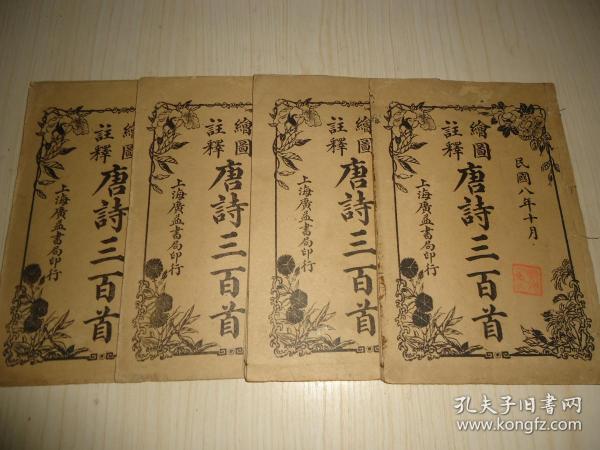 繪圖
註釋
唐詩三百首
上海廣益書局印行
繪圖
註釋
唐詩三百首
上海廣益書局印行
繪圖
註釋
唐詩三百首
上海廣益書局印行
民國八年十月
繪圖
註釋
唐詩三百首
上海廣益書局印行
孔夫子旧书网
www.kongfz.com